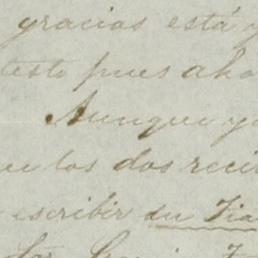 gracias está y
testo pues aho
Aunque yo
los dos reci
escribir su Tia